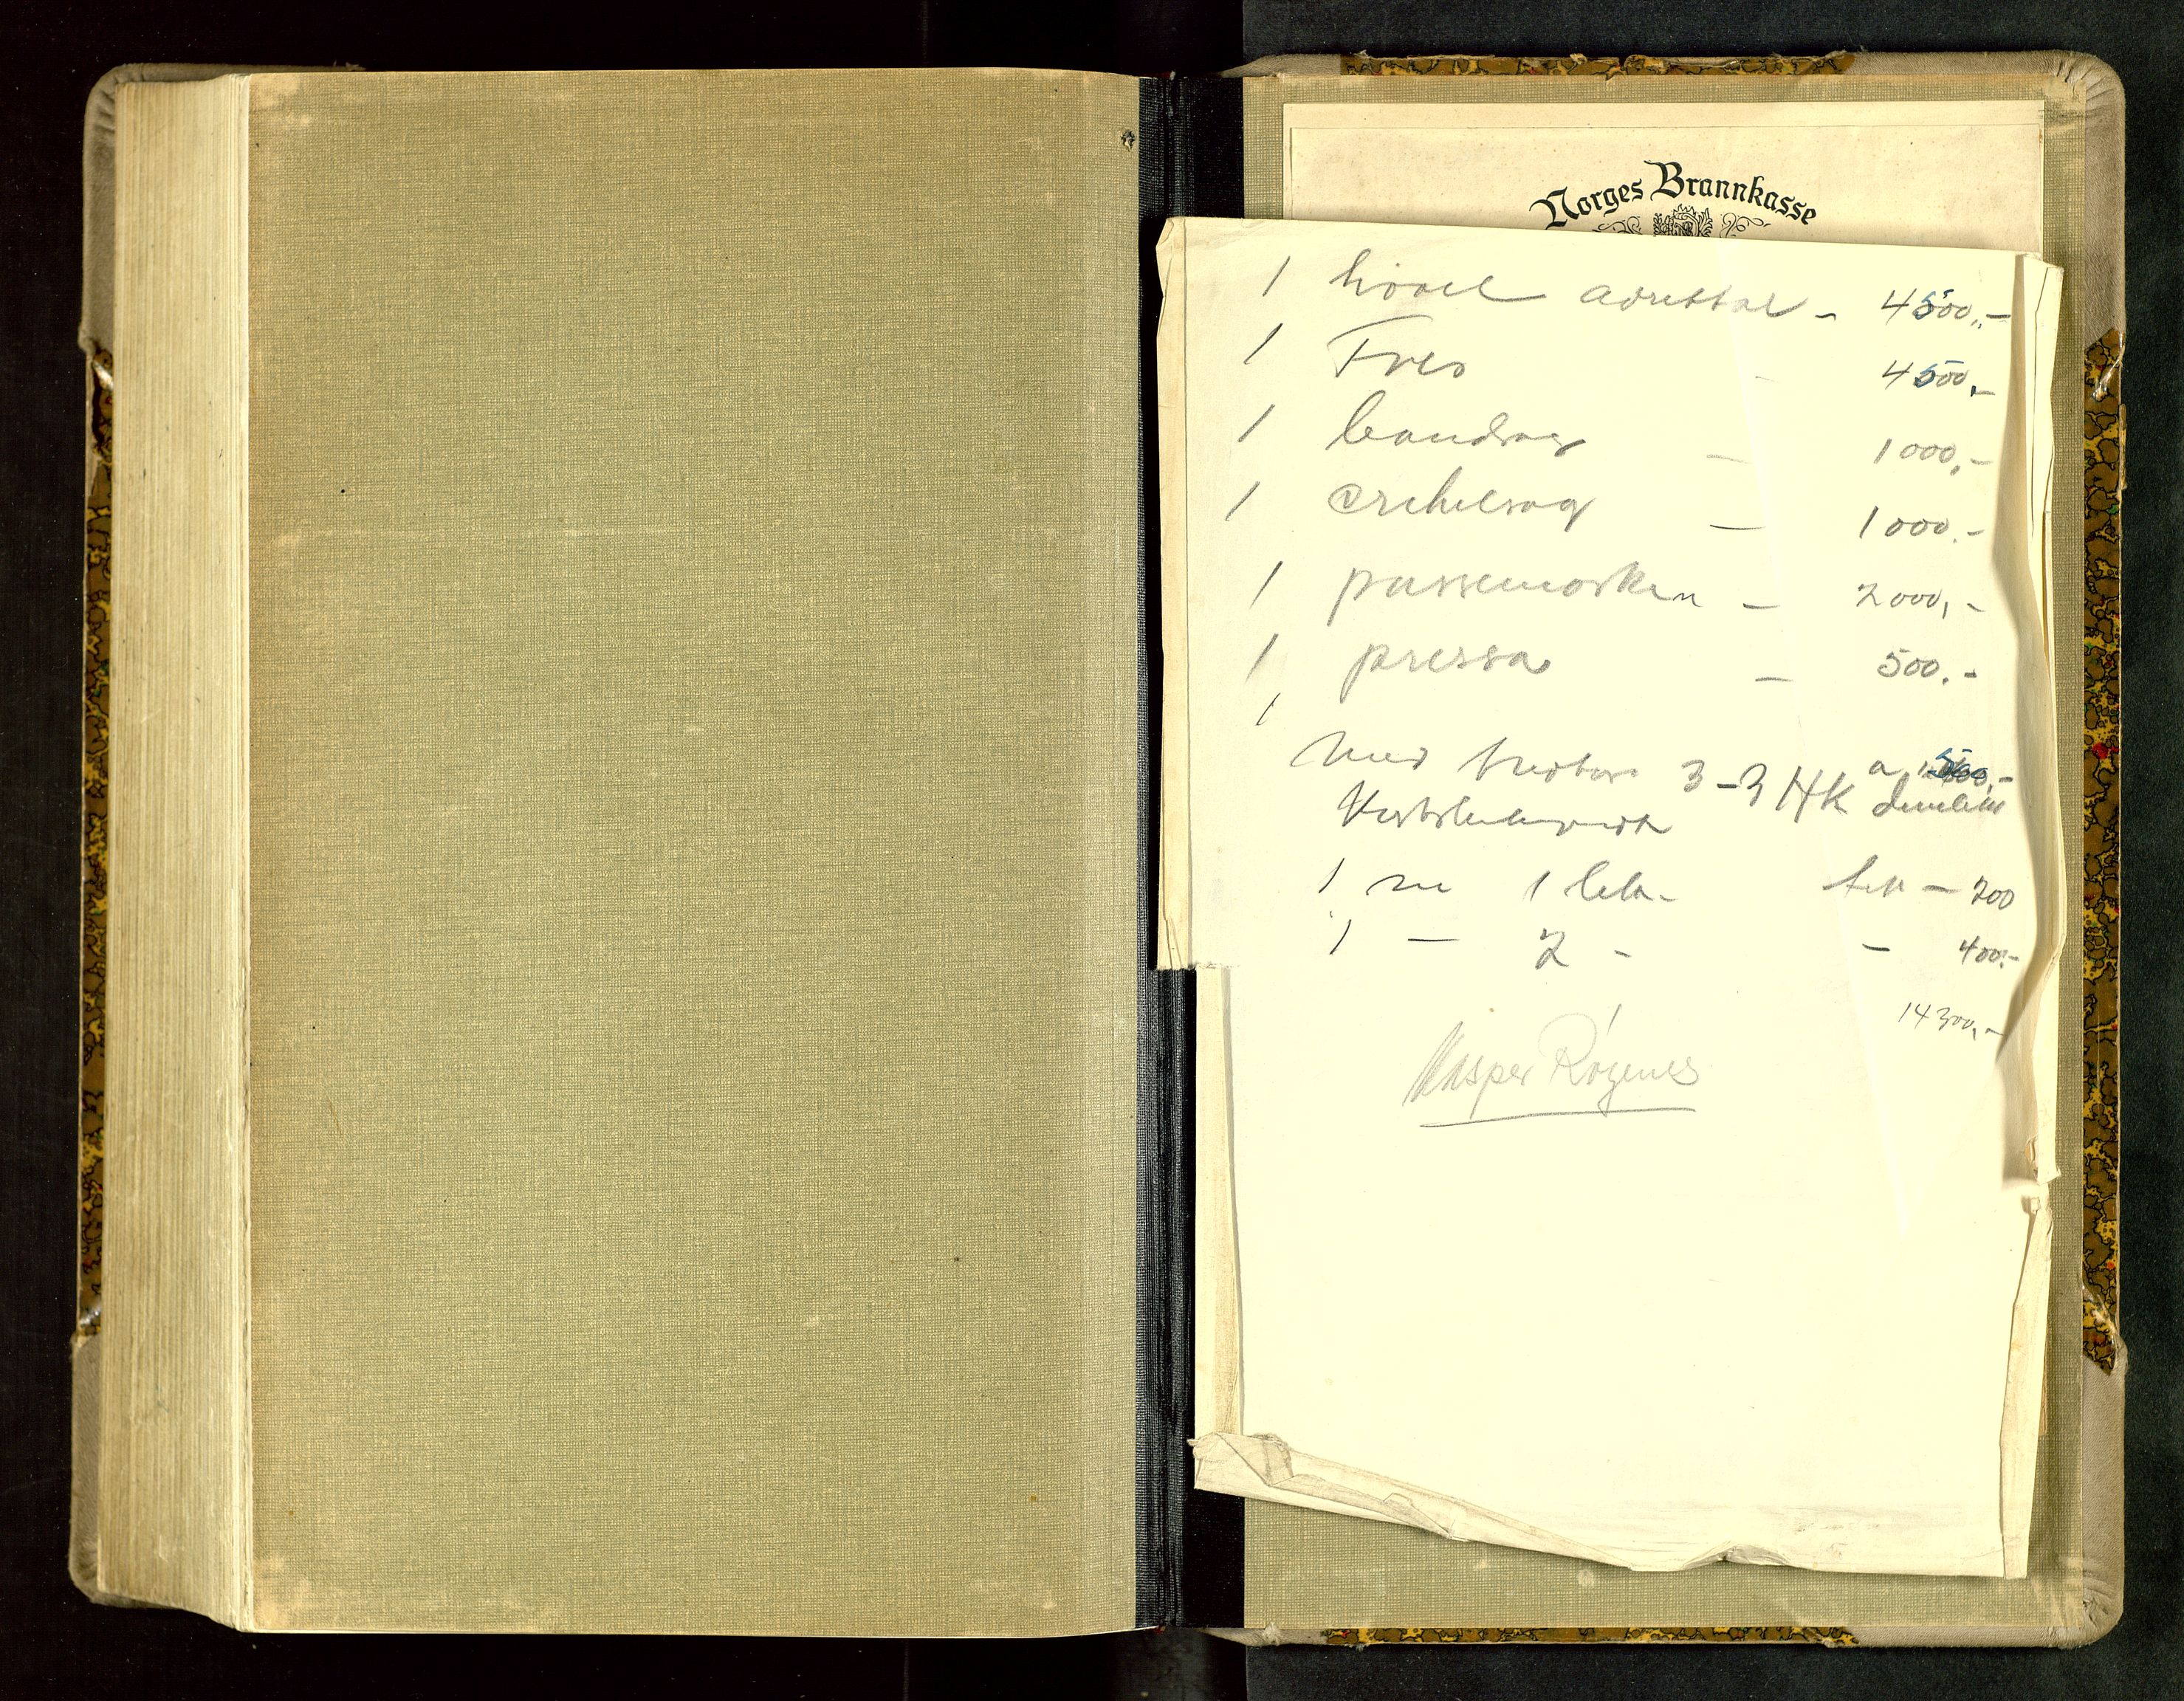 Norges Brannkasse
1 høvel avrettar - 4500,-
1 Fres - 4500,-
1 bandsag - 1000,-
1 sirkelsag - 1000.-
1 pussemaskin - 2000,-
1 pressa - 500.-
1
Med 3-3 HK a 500,-
1 m 1 - 200
1 - 2 - - 400.-
14300,-
Kasper Røgenes